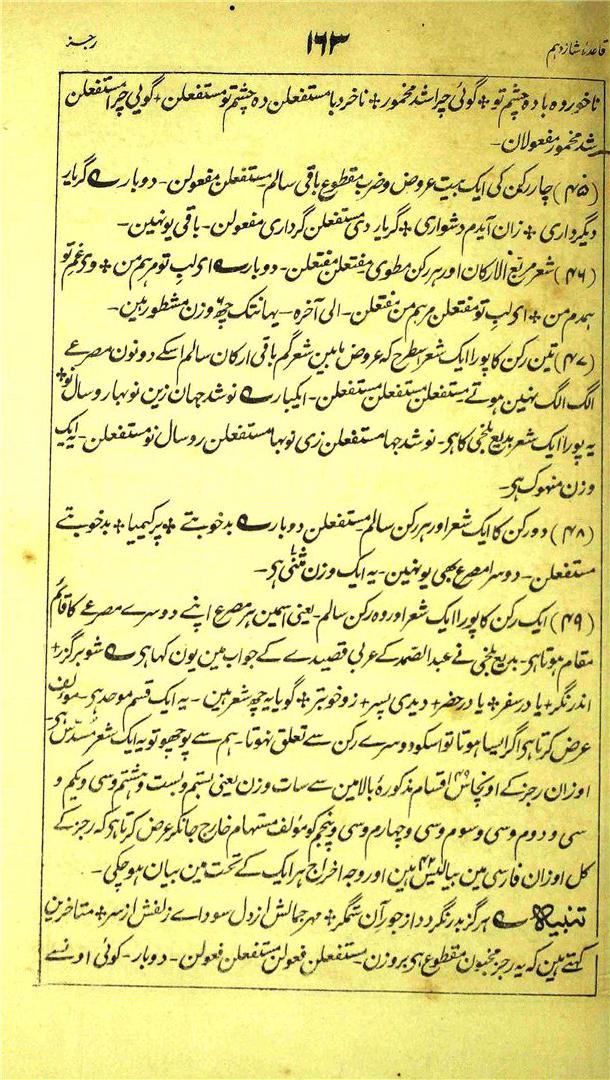 قاعدۂ شازدہم ۱۶۳ رجز
ناخوردہ بادہ چشم تو + گوئی چرا شد مخمور + ناخردبا مستفعلن دہ چشم تو مستفعلن + گویی چرا مستفعلن
شد مخمور مفعولان -
(۴۵) چار رکن کی ایک بیت عروض و ضرب مقطوع باقی سالم - مستفعلن مفعولن - دوبار ے گر یار
دیگر داری + زان آیدم دشواری + گر یار دی مستفعلن گرداری مفعولن - باقی یونہین -
(۴۶) شعر مربع الارکان اور ہر رکن مطوی - مفتعلن مفتعلن - دوبار ے ای لب تو مرہم من + وی غم تو
ہمدم من + ای لب تو مفتعلن مرہم من مفتعلن - الی آخرہ - یہانتک چھ ۶ وزن مشطور ہین -
(۴۷) تین رکن کا پورا ایک شعر اسطرح کہ عروض مابین شعر گم باقی ارکان سالم اسکے دونون مصرعے
الگ الگ نہین ہوتے مستفعلن مستفعلن مستفعلن - ایکبار ے نو شد جہان زین نوبہار و سال نو +
یہ پورا ایک شعر بدیع بلخی کا ہی - نو شد جہا مستفعلن زی نوبہا مستفعلن ر و سال نو مستفعلن - ایک
وزن منہوک ہی -
(۴۸) دو رکن کا ایک شعر اور ہر رکن سالم - مستفعلن دوبار ے بدخو بتے + پرکیمیا + بدخو بتے
مستفعلن - دوسرا مصرع بھی یونہین - یہ ایک وزن مثنیٰ ہی -
(۴۹) ایک رکن کا پورا ایک شعر اور وہ رکن سالم - یعنی اسمین ہر مصرع اپنے دوسرے مصرعے کا قائم
مقام ہوتا ہی - بدیع بلخی نے عبدالصمد کے عربی قصیدے کے جواب مین یون کہا ہی ے شو برگزر +
اندر نگر + یا در سفر + یا در حضر + دیدی پسر + زو خوبتر + گویا یہ چھ شعر ہین - یہ ایک قسم موحد ہی - مولف
عرض کرتا ہی اگر ایسا ہوتا تو اسکو دوسرے رکن سے تعلق نہوتا - ہم سے پوچھو تو یہ ایک شعر مسدس ہی -
اوزان رجز کے اونچاس ۴۹ اقسام مذکورۂ بالا مین سے سات وزن یعنی بستم و بست و ہشتم و سی و یکم و
سی و دوم و سی و سوم و سی و چہارم و سی و پنجم کو مولف مستہام خارج جانکر عرض کرتا ہی کہ رجز کے
کل اوزان فارسی مین بیالیس ۴۲ ہین اور وجہ اخراج ہر ایک کے تحت مین بیان ہو چکی -
تنبیہ ے ہرگز بدر نگردد از جور آن ستمگر + مہر جمالش از دل سوداے زلفش از سر + متاخرین
کہتے ہین کہ یہ رجز مخبون مقطوع ہی بروزن - مستفعلن فعولن مستفعلن فعولن - دوبار - کوئی اونسے